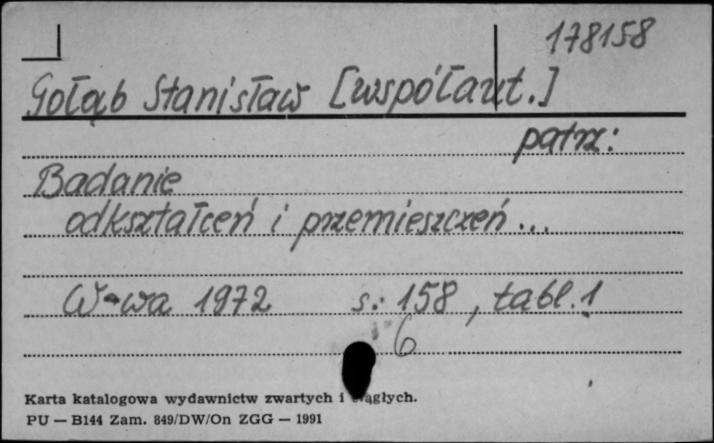 178158
Gołąb Stanisław [współaut.]
patrz:
Badanie
odkształceń i przemieszczeń...
W-wa 1972 s. 158, tabl. 1
6
Karta katalogowa wydawnictw zwartych i ciągłych.
PU — B144 Zam. 849/DW/On ZGG — 1991